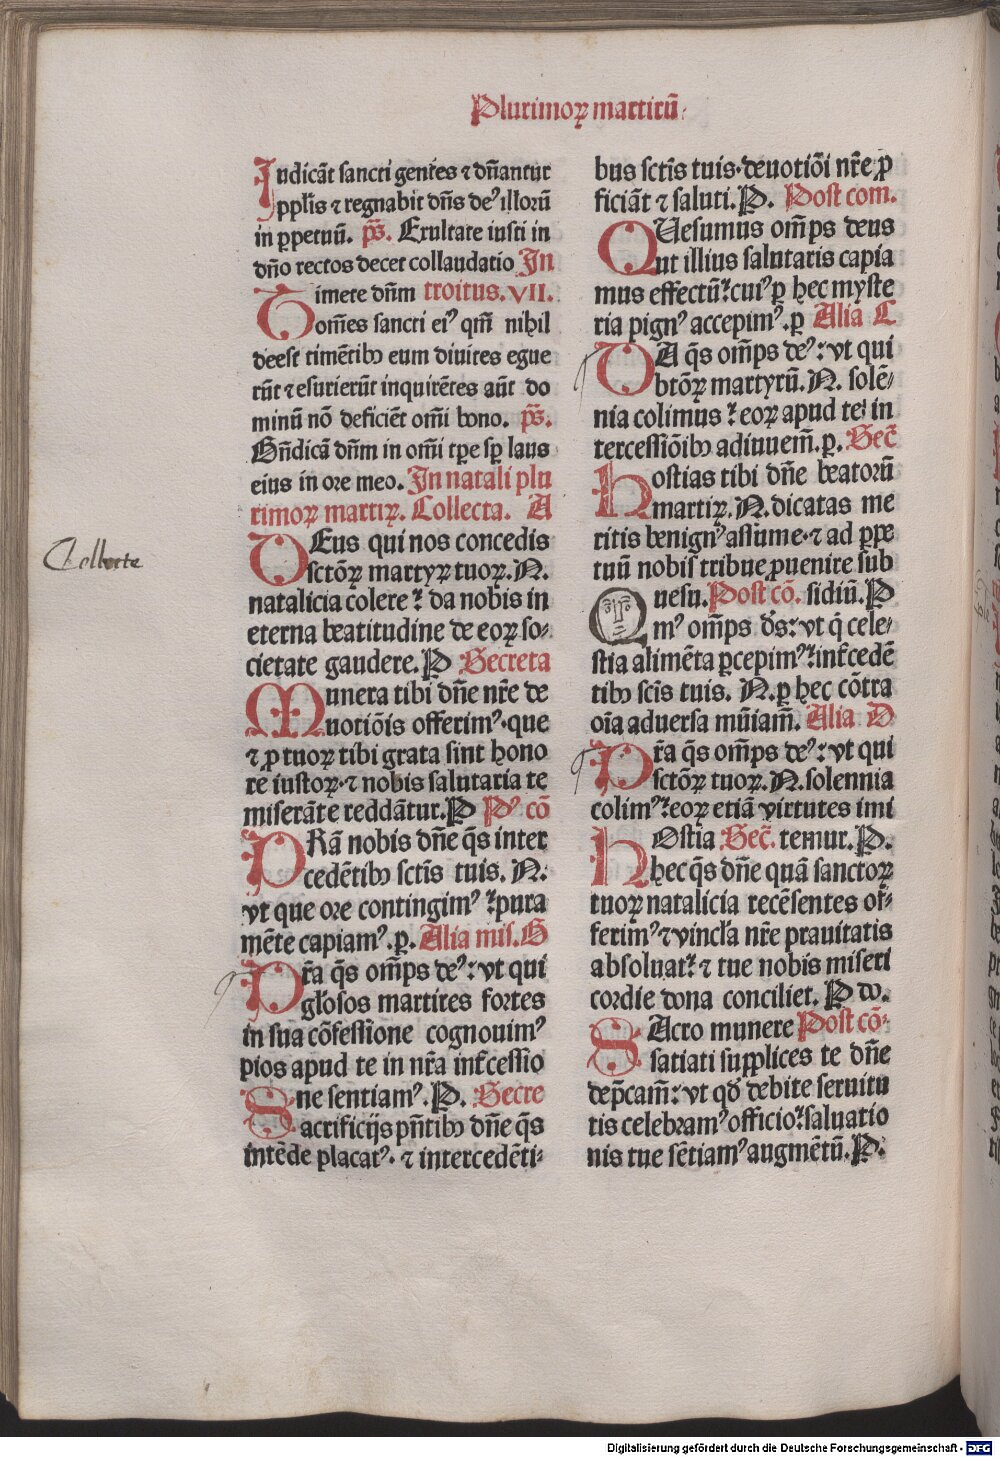 Plurimoꝝ martirū.
Iudicāt sancti gentes ⁊ dn̄antur
pplis ⁊ regnabit dn̄s deꝰ illorū
in ꝑpetuū. ps̄. Exultate iusti in
dn̄o rectos decet collaudatio In
Timete dn̄m troitus. VII.
omēs sancti eiꝰ qm̄ nihil
deest timētibꝫ eum diuites egue
rūt ⁊ esurierūt inquirētes aūt do
minū nō deficiēt om̄i bono. ps̄.
Bn̄dicā dn̄m in om̄i tꝑe sꝑ laus
eius in ore meo. In natali plu
rimoꝝ martiꝝ. Collecta. A
DEus qui nos concedis
sctōꝝ martyꝝ tuoꝝ. N.
natalicia colere: da nobis in
eterna beatitudine de eoꝝ so⸗
cietate gaudere. P Secreta
Collecte
Munera tibi dn̄e nr̄e de
uotiōis offerimꝰ. que
⁊ ꝓ tuoꝝ tibi grata sint hono
re iustoꝝ. ⁊ nobis salutaria te
miserāte reddātur. P Pꝰ cō
PRā nobis dn̄e q̄s inter
cedētibꝫ sctīs tuis. N.
vt que ore contingimꝰ: pura
mēte capiamꝰ. p. Alia mis. B
Pr̄a q̄s om̄ps deꝰ: vt qui
glosos martires fortes
in sua cōfessione cognouimꝰ
pios apud te in nr̄a int̄cessio
ne sentiamꝰ. P. Secre
Sacrificijs pn̄tibꝫ dn̄e q̄s
intēde placatꝰ. ⁊ intercedēti⸗
bus sctīs tuis. deuotiōi nr̄e ꝓ
ficiāt ⁊ saluti. P. Post com.
QUesumus om̄ps deus
ut illius salutaris capia
mus effectū: cuiꝰ ꝑ hec myste
ria pignꝰ accepimꝰ. p Alia C
DA q̄s om̄ps deꝰ: vt qui
btōꝝ martyrū. N. solē⸗
nia colimus: eoꝝ apud te in
tercessiōibꝫ adiuuem̄. p. Sec̄
hostias tibi dn̄e beatorū
martiꝝ. N. dicatas me
ritis benignꝰ assume. ⁊ ad ꝑpe
tuū nobis tribue ꝓuenire sub
Quesu. Post cō. sidiū. P
mꝰ om̄ps ds: vt q̄ cele⸗
stia alimēta ꝑcepimꝰ: int̄cedē
tibꝫ scīs tuis. N. ꝑ hec cōtra
oīa aduersa mūiam̄. Alia D
Pr̄a q̄s om̄ps deꝰ: vt qui
sctōꝝ tuoꝝ. N. solennia
colimꝰ: eoꝝ etiā virtutes imi
hOstia Sec̄. temur. P.
hec q̄s dn̄e quā sanctoꝝ
tuoꝝ natalicia recēsentes of⸗
ferimꝰ ⁊ vincla nr̄e prauitatis
absoluat: ⁊ tue nobis miseri
cordie dona conciliet. P do.
SAcro munere Post cō.
satiati supplices te dn̄e
dep̄cam̄: vt qd̄ debite seruitu
tis celebramꝰ officio: saluatio
nis tue sētiamꝰ augmētū. P.
Digitalisierung gefördert durch die Deutsche Forschungsgemeinschaft - DFG